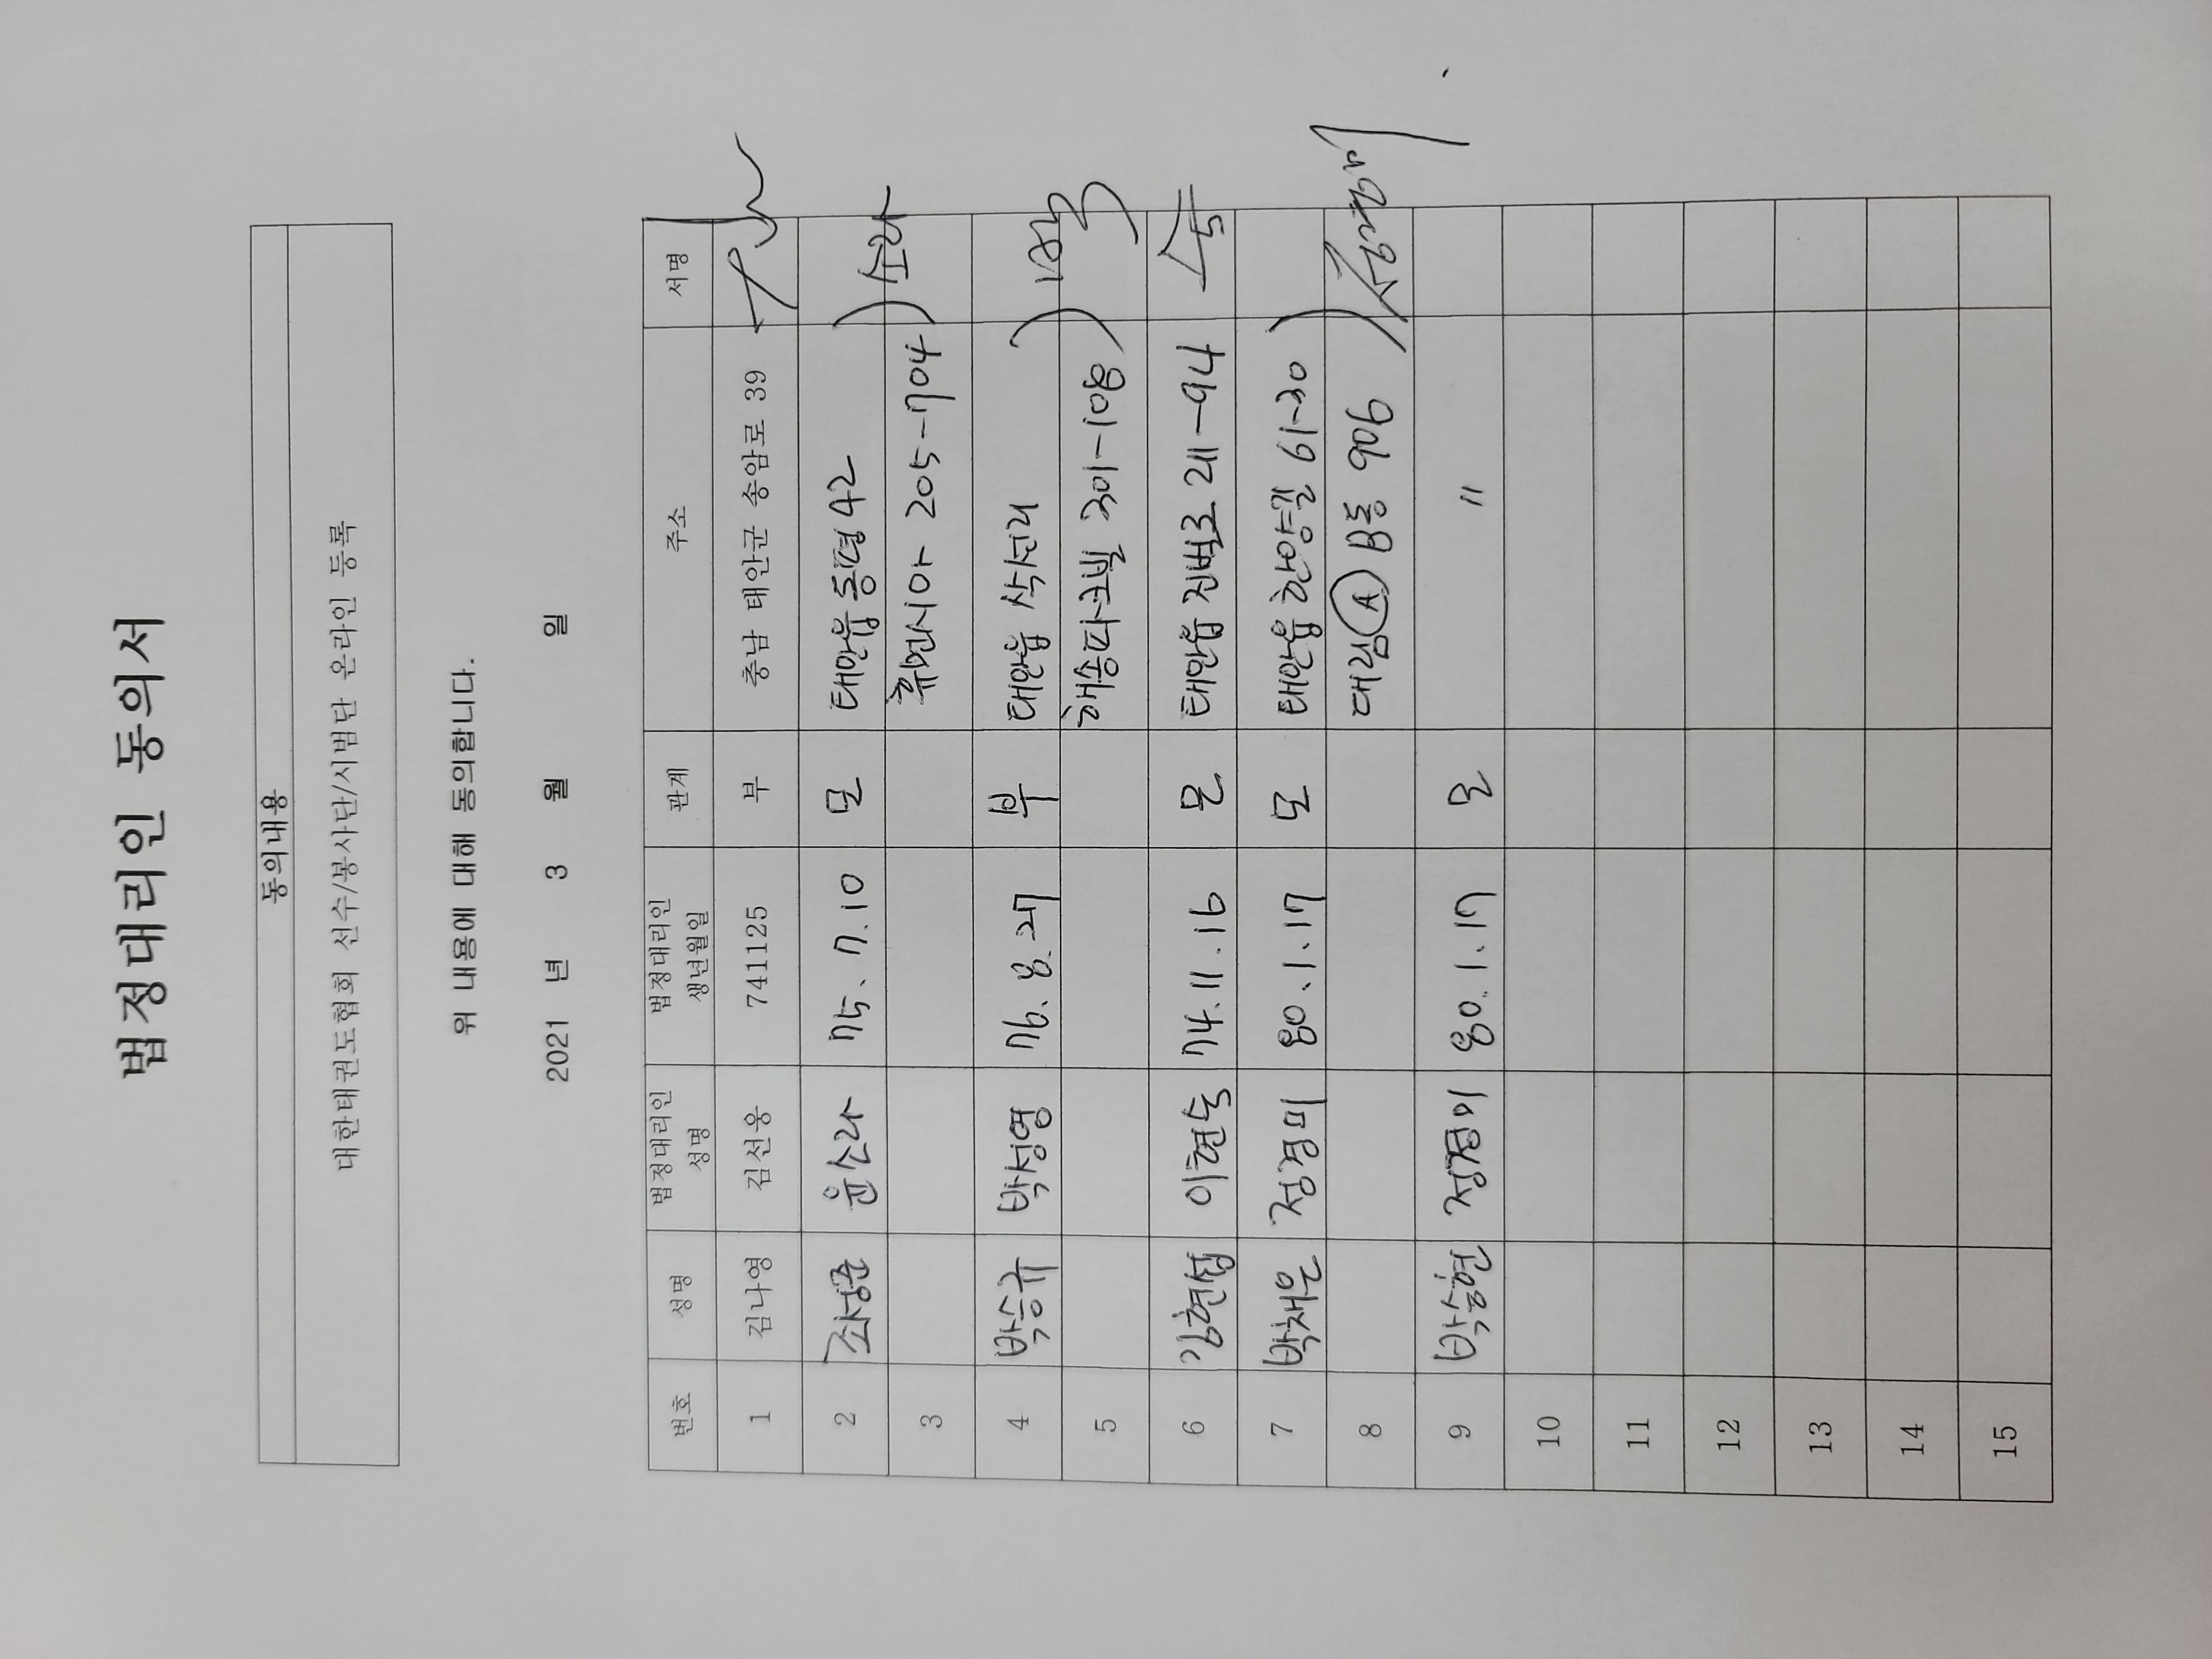 법정대리인 동의서
동의내용
대한태권도협회 선수/봉사단/시범단 온라인 등록
위 내용에 대해 동의합니다.
2021 년 3 월 일
번호 성명 법정대리인 성명 법정대리인 생년월일 관계 주소 서명
1 김나영 김선웅 741125 부 충남 태안군 송암로 39
2 조성준 윤소라 75. 7. 10 모 태안읍 동평42 소라
3 휴먼시아 205-704
4 박승규 박성영 76. 8. 27 부 태안읍 삭선리
5 해송파크빌 301-108
6 김현섭 이현숙 74. 11. 16 모 태안읍 진벌로 21-94
7 박채은 정경미 80. 1. 17 모 태안읍 환양길 61-30
8 대림 A B동 906
9 박슬현 정경미 80. 1. 17 모 〃
10
11
12
13
14
15